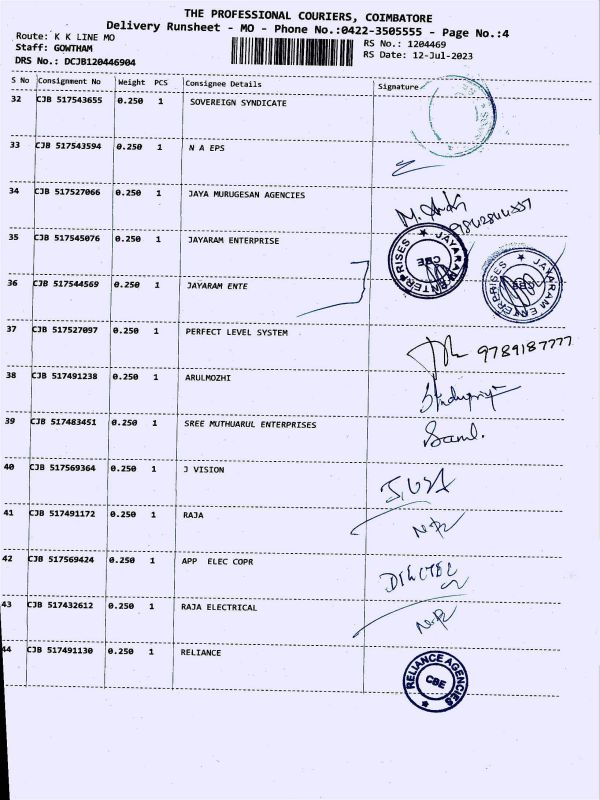 THE PROFESSIONAL COURIERS, COIMBATORE
Delivery Runsheet - MO - Phone No.:0422-3505555 - Page No.:4
Route: K K LINE MO
Staff: GOWTHAM
DRS No.: DCJB120446904
RS No.: 1204469
RS Date: 12-Jul-2023
S No Consignment No Weight PCS Consignee Details Signature
32 CJB 517543655 0.250 1 SOVEREIGN SYNDICATE
33 CJB 517543594 0.250 1 N A EPS
34 CJB 517527066 0.250 1 JAYA MURUGESAN AGENCIES
35 CJB 517545076 0.250 1 JAYARAM ENTERPRISE
JAYARAM ENTERPRISES ★ CBE
36 CJB 517544569 0.250 1 JAYARAM ENTE
JAYARAM ENTERPRISES ★ CBE
37 CJB 517527097 0.250 1 PERFECT LEVEL SYSTEM
9789187777
38 CJB 517491238 0.250 1 ARULMOZHI
39 CJB 517483451 0.250 1 SREE MUTHUARUL ENTERPRISES
40 CJB 517569364 0.250 1 J VISION
41 CJB 517491172 0.250 1 RAJA
42 CJB 517569424 0.250 1 APP ELEC COPR
43 CJB 517432612 0.250 1 RAJA ELECTRICAL
44 CJB 517491130 0.250 1 RELIANCE
RELIANCE AGENCIES ★ CBE